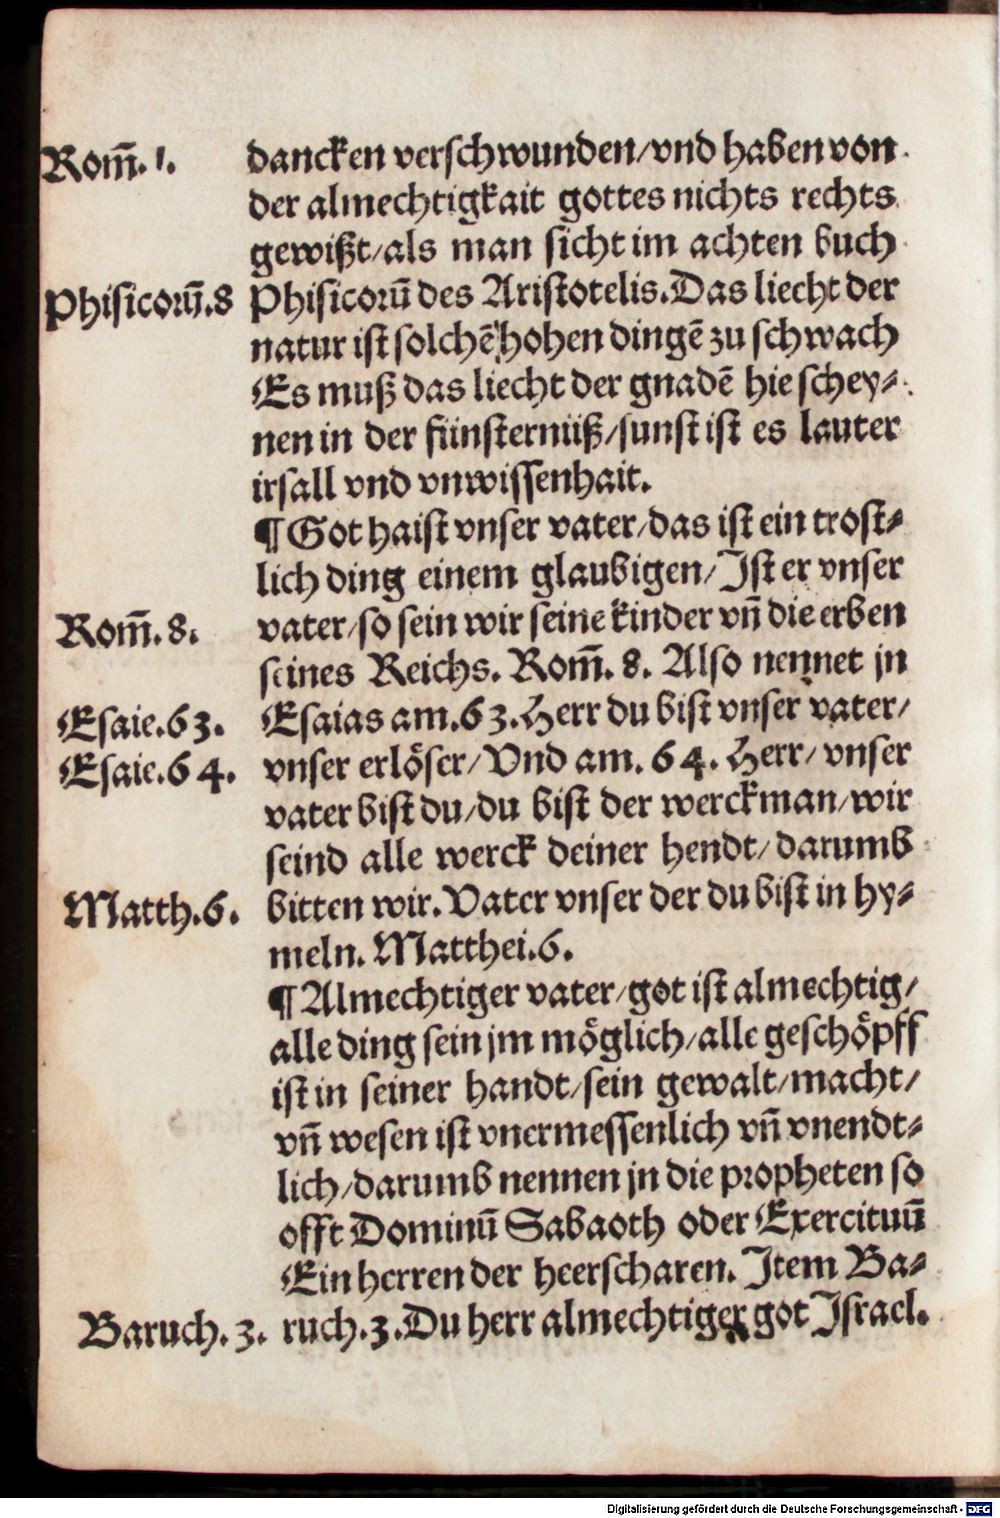 Rom̃. 1.
dancken verschwunden/vnd haben von
der almechtigkait gottes nichts rechts
gewißt/als man sicht im achten buch
Phisicorū.8
Phisicorū des Aristotelis.Das liecht der
natur ist solchē hohen dingē zu schwach
Es muß das liecht der gnadē hie schey⸗
nen in der finsternüß/sunst ist es lauter
irsall vnd vnwissenhait.
¶ Got haist vnser vater/das ist ein trost⸗
lich ding einem glaubigen/Ist er vnser
Rom̃. 8.
vater/so sein wir seine kinder vñ die erben
seines Reichs. Rom̃. 8. Also nennet jn
Esaie.63.
Esaias am.63.Herr du bist vnser vater/
Esaie.64.
vnser erlöser/Vnd am. 64. Herr/vnser
vater bist du/du bist der werckman/wir
seind alle werck deiner hendt/darumb
Matth.6.
bitten wir.Vater vnser der du bist in hy⸗
meln. Matthei.6.
¶ Almechtiger vater/got ist almechtig/
alle ding sein jm möglich/alle geschöpff
ist in seiner handt/sein gewalt/macht/
vñ wesen ist vnermessenlich vñ vnendt⸗
lich/darumb nennen jn die propheten so
offt Dominū Sabaoth oder Exercituū
Ein herren der heerscharen. Item Ba⸗
Baruch. 3.
ruch.3.Du herr almechtiger got Israel.
Digitalisierung gefördert durch die Deutsche Forschungsgemeinschaft - DFG